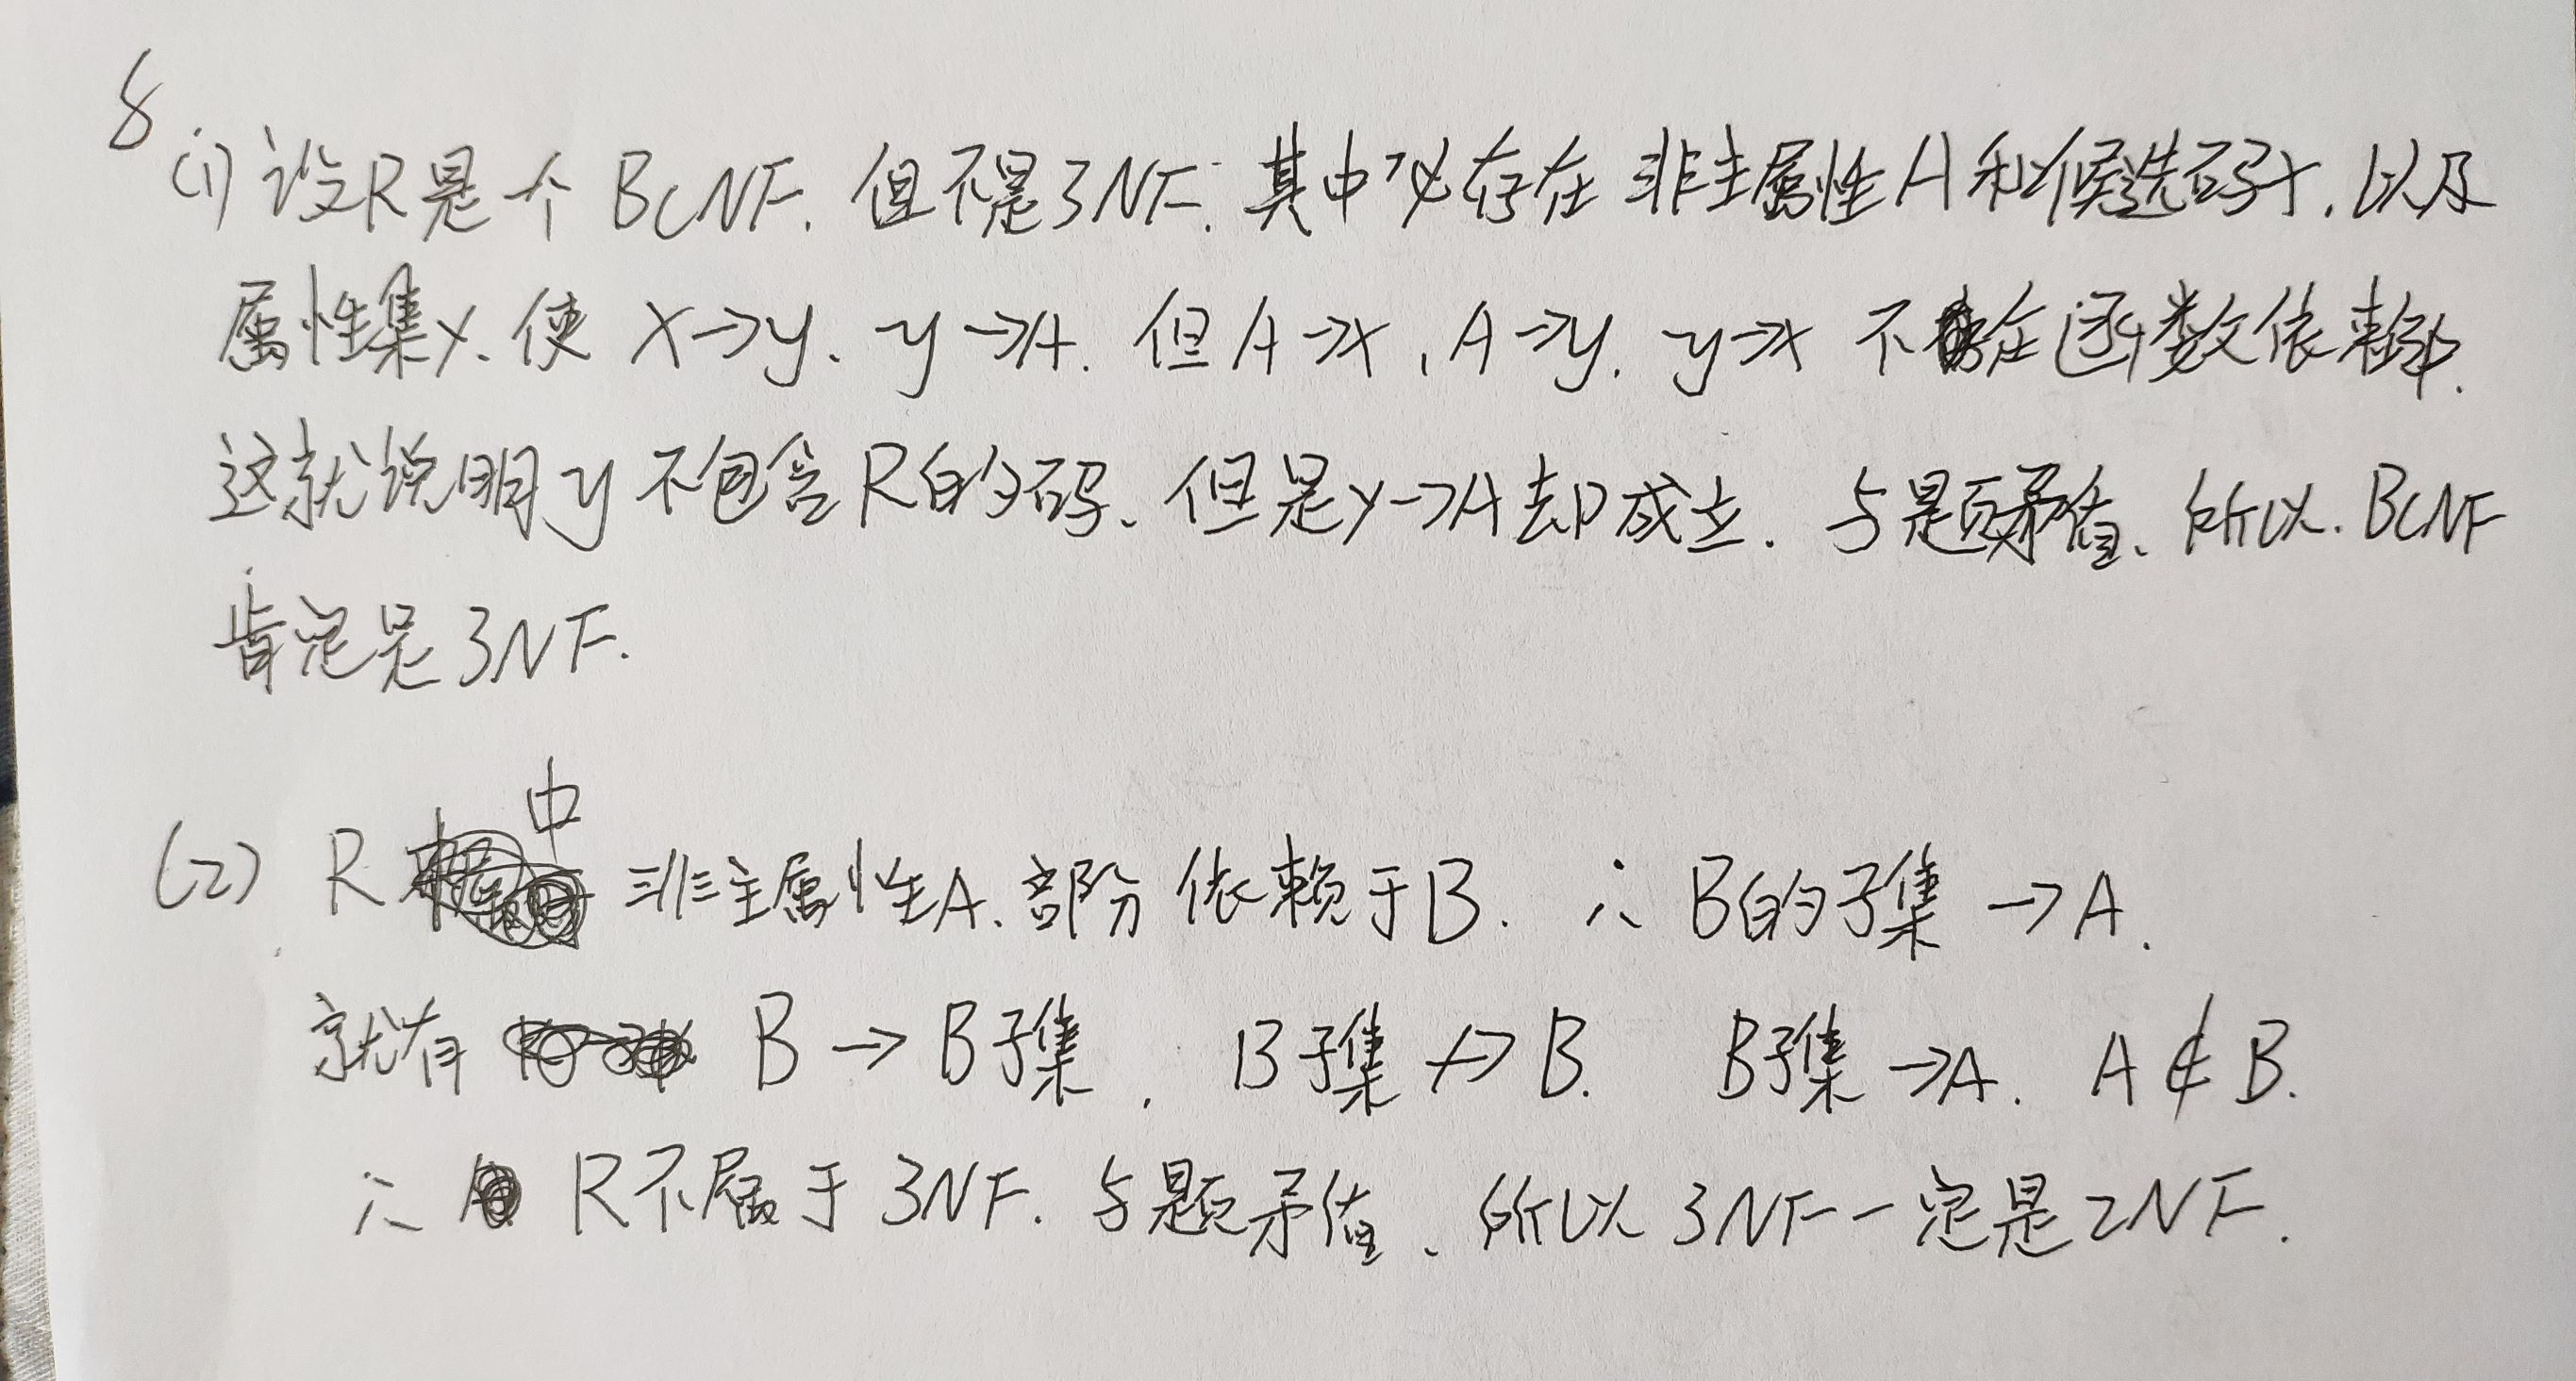 8
(1) 设R是个BCNF. 但不是3NF. 其中必存在非主属性A和候选码X, 以及
属性集y. 使 X→y、y→A. 但 A→X, A→y. y→X 不在函数依赖中.
这就说明y不包含R的码、但是y→A却成立. 与题矛值、所以. BCNF
肯定是3NF.
(2) R中非主属性A. 部分依赖于B. ∴ B的子集→A.
就有 B→B子集, B子集↛B. B子集→A. A∉B.
∴ R不属于3NF. 与题矛值、所以3NF一定是2NF.